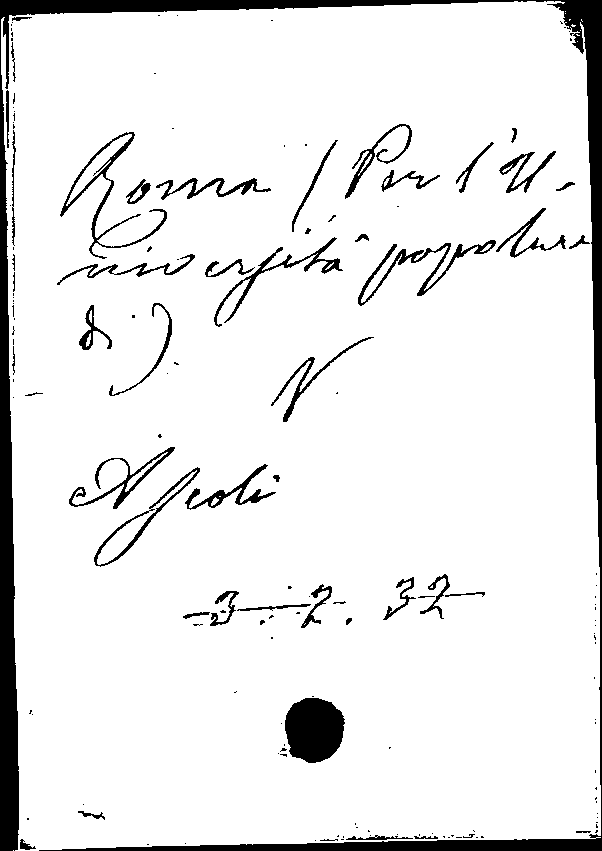 Roma (Per l'U-
niversità popolare
di)
V.
Ascoli
3. 2. 32